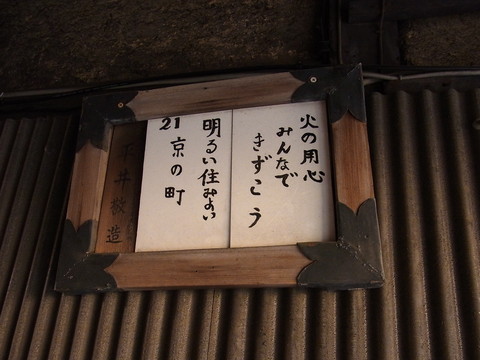 火の用心
みんなで
きずこう
明るい住みよい
21京の町